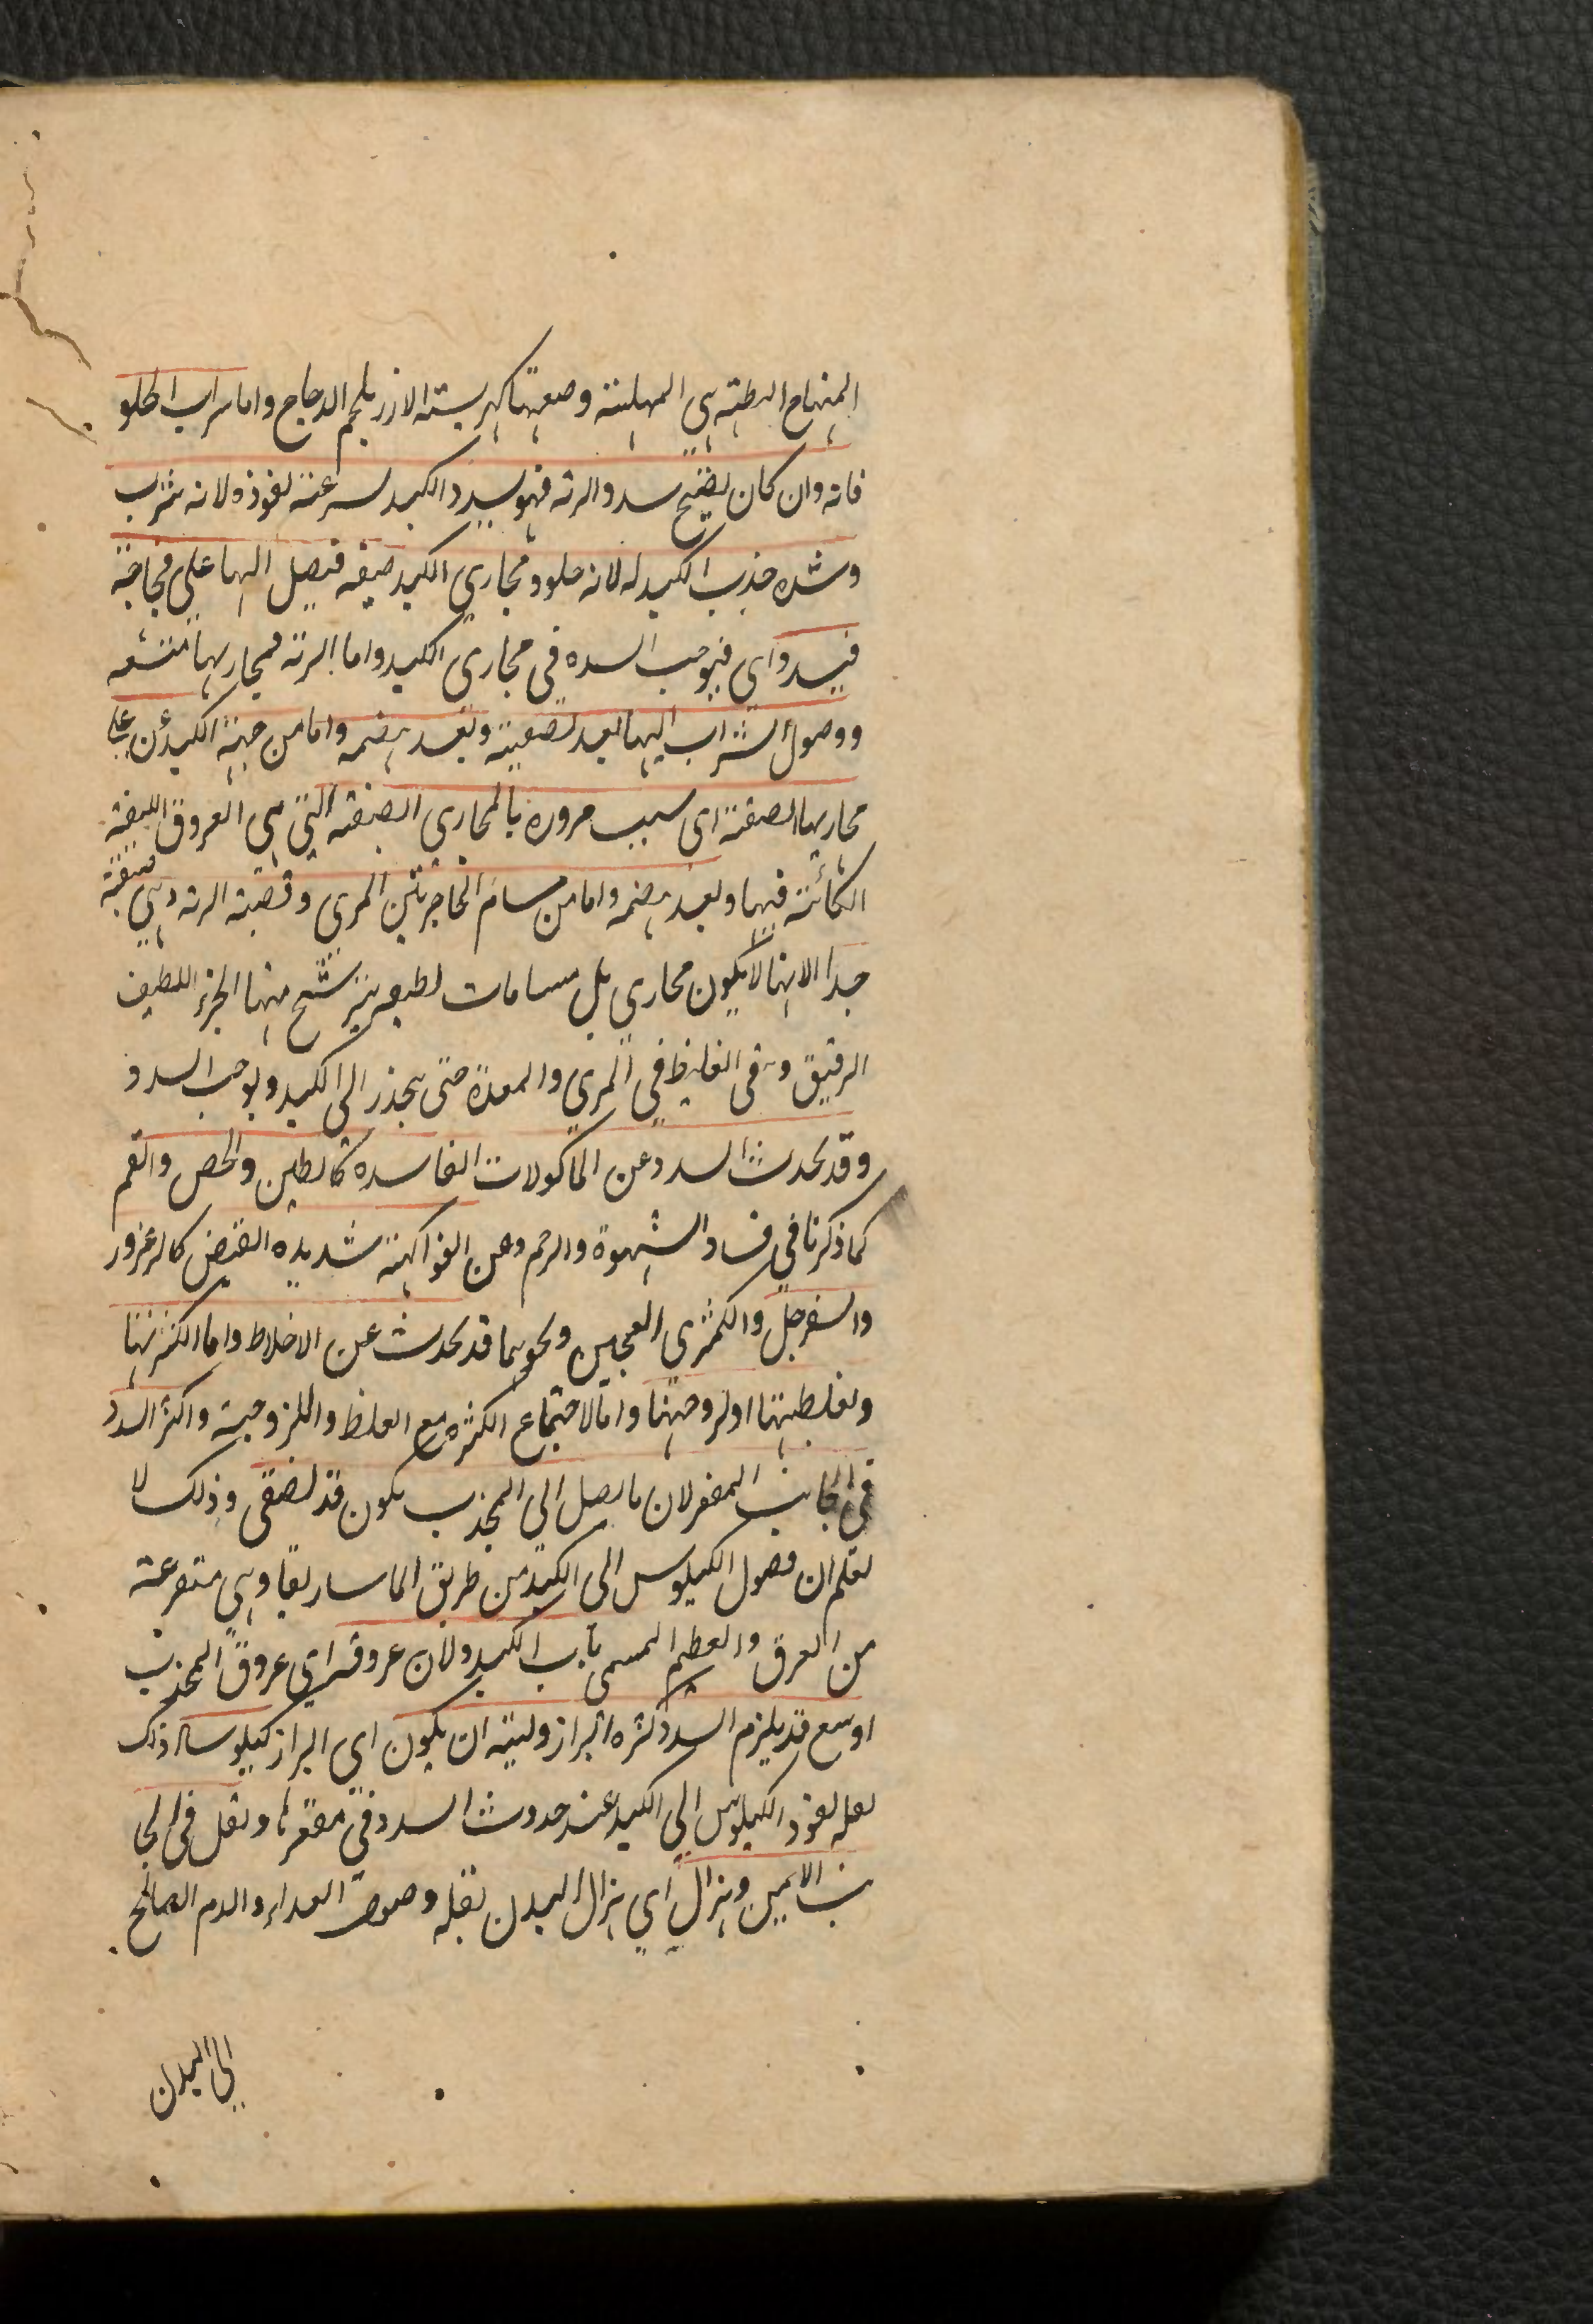 المنهاج البطية هى المهلبية وصنعتها كهريسة الارز بلحم الدجاج واما شراب الحلو
فانه وان كان يفتح سدد الرئة فهو يسدد الكبد لسرعة نفوذه لانه شراب
وشده جذب الكبد له لانه حلو ومجارى الكبد ضيقه فيصل اليها على فجاجته
فيسد واى فيوجب السده فى مجارى الكبد واما الرئة فمجاريها متسعه
ووصول الشراب اليها بعد تصفيته وبعد هضمه واما من جهة الكبد عن على
مجاريها الضيقة اى بسبب مروره بالمجارى الضيقه التى هى العروق الليفية
الكائنة فيها وبعد هضمه واما من مسام الحاجز بين المرى وقصبة الرئه وهى ضيقة
جدا الا انها لا يكون مجارى بل مسامات لطيفه يترشح منها الجزء اللطيف
الرقيق وبقى الغليظ فى المرى والمعدة حتى ينحدر الى الكبد ويوجب السدد
وقد يحدث السدد عن الماكولات الفاسده كالطين والجص والفحم
كما ذكرنا فى فساد الشهوة والرحم وعن الفواكهة شديده القبض كالزعرور
والسفرجل والكمثرى العجين ونحوهما قد يحدث عن الاخلاط واما لكثرتها
ولغلظتها او لزوجتها واما لاجتماع الكثره مع الغلظ واللزوجية واكثر السدد
فى الجانب المقعر لان ما يصل الى المحدب يكون قد تصفى وذلك لا
تعلم ان وصول الكيلوس الى الكبد من طريق الماساريقا وهى متفرعة
من العرق والعظيم المسمى بباب الكبد ولان عروقه اى عروق المحدب
اوسع قد يلزم السدد كثره البراز ولينه ان يكون اى البراز كيلوسا وذلك
لعله نفوذ الكيلوس الى الكبد عند حدوث السدد فى مقعرها وثقل فى الجا
نب الايمن وهزال اى هزال البدن لقلة وصول الغداء والدم الصالح
الى البدن